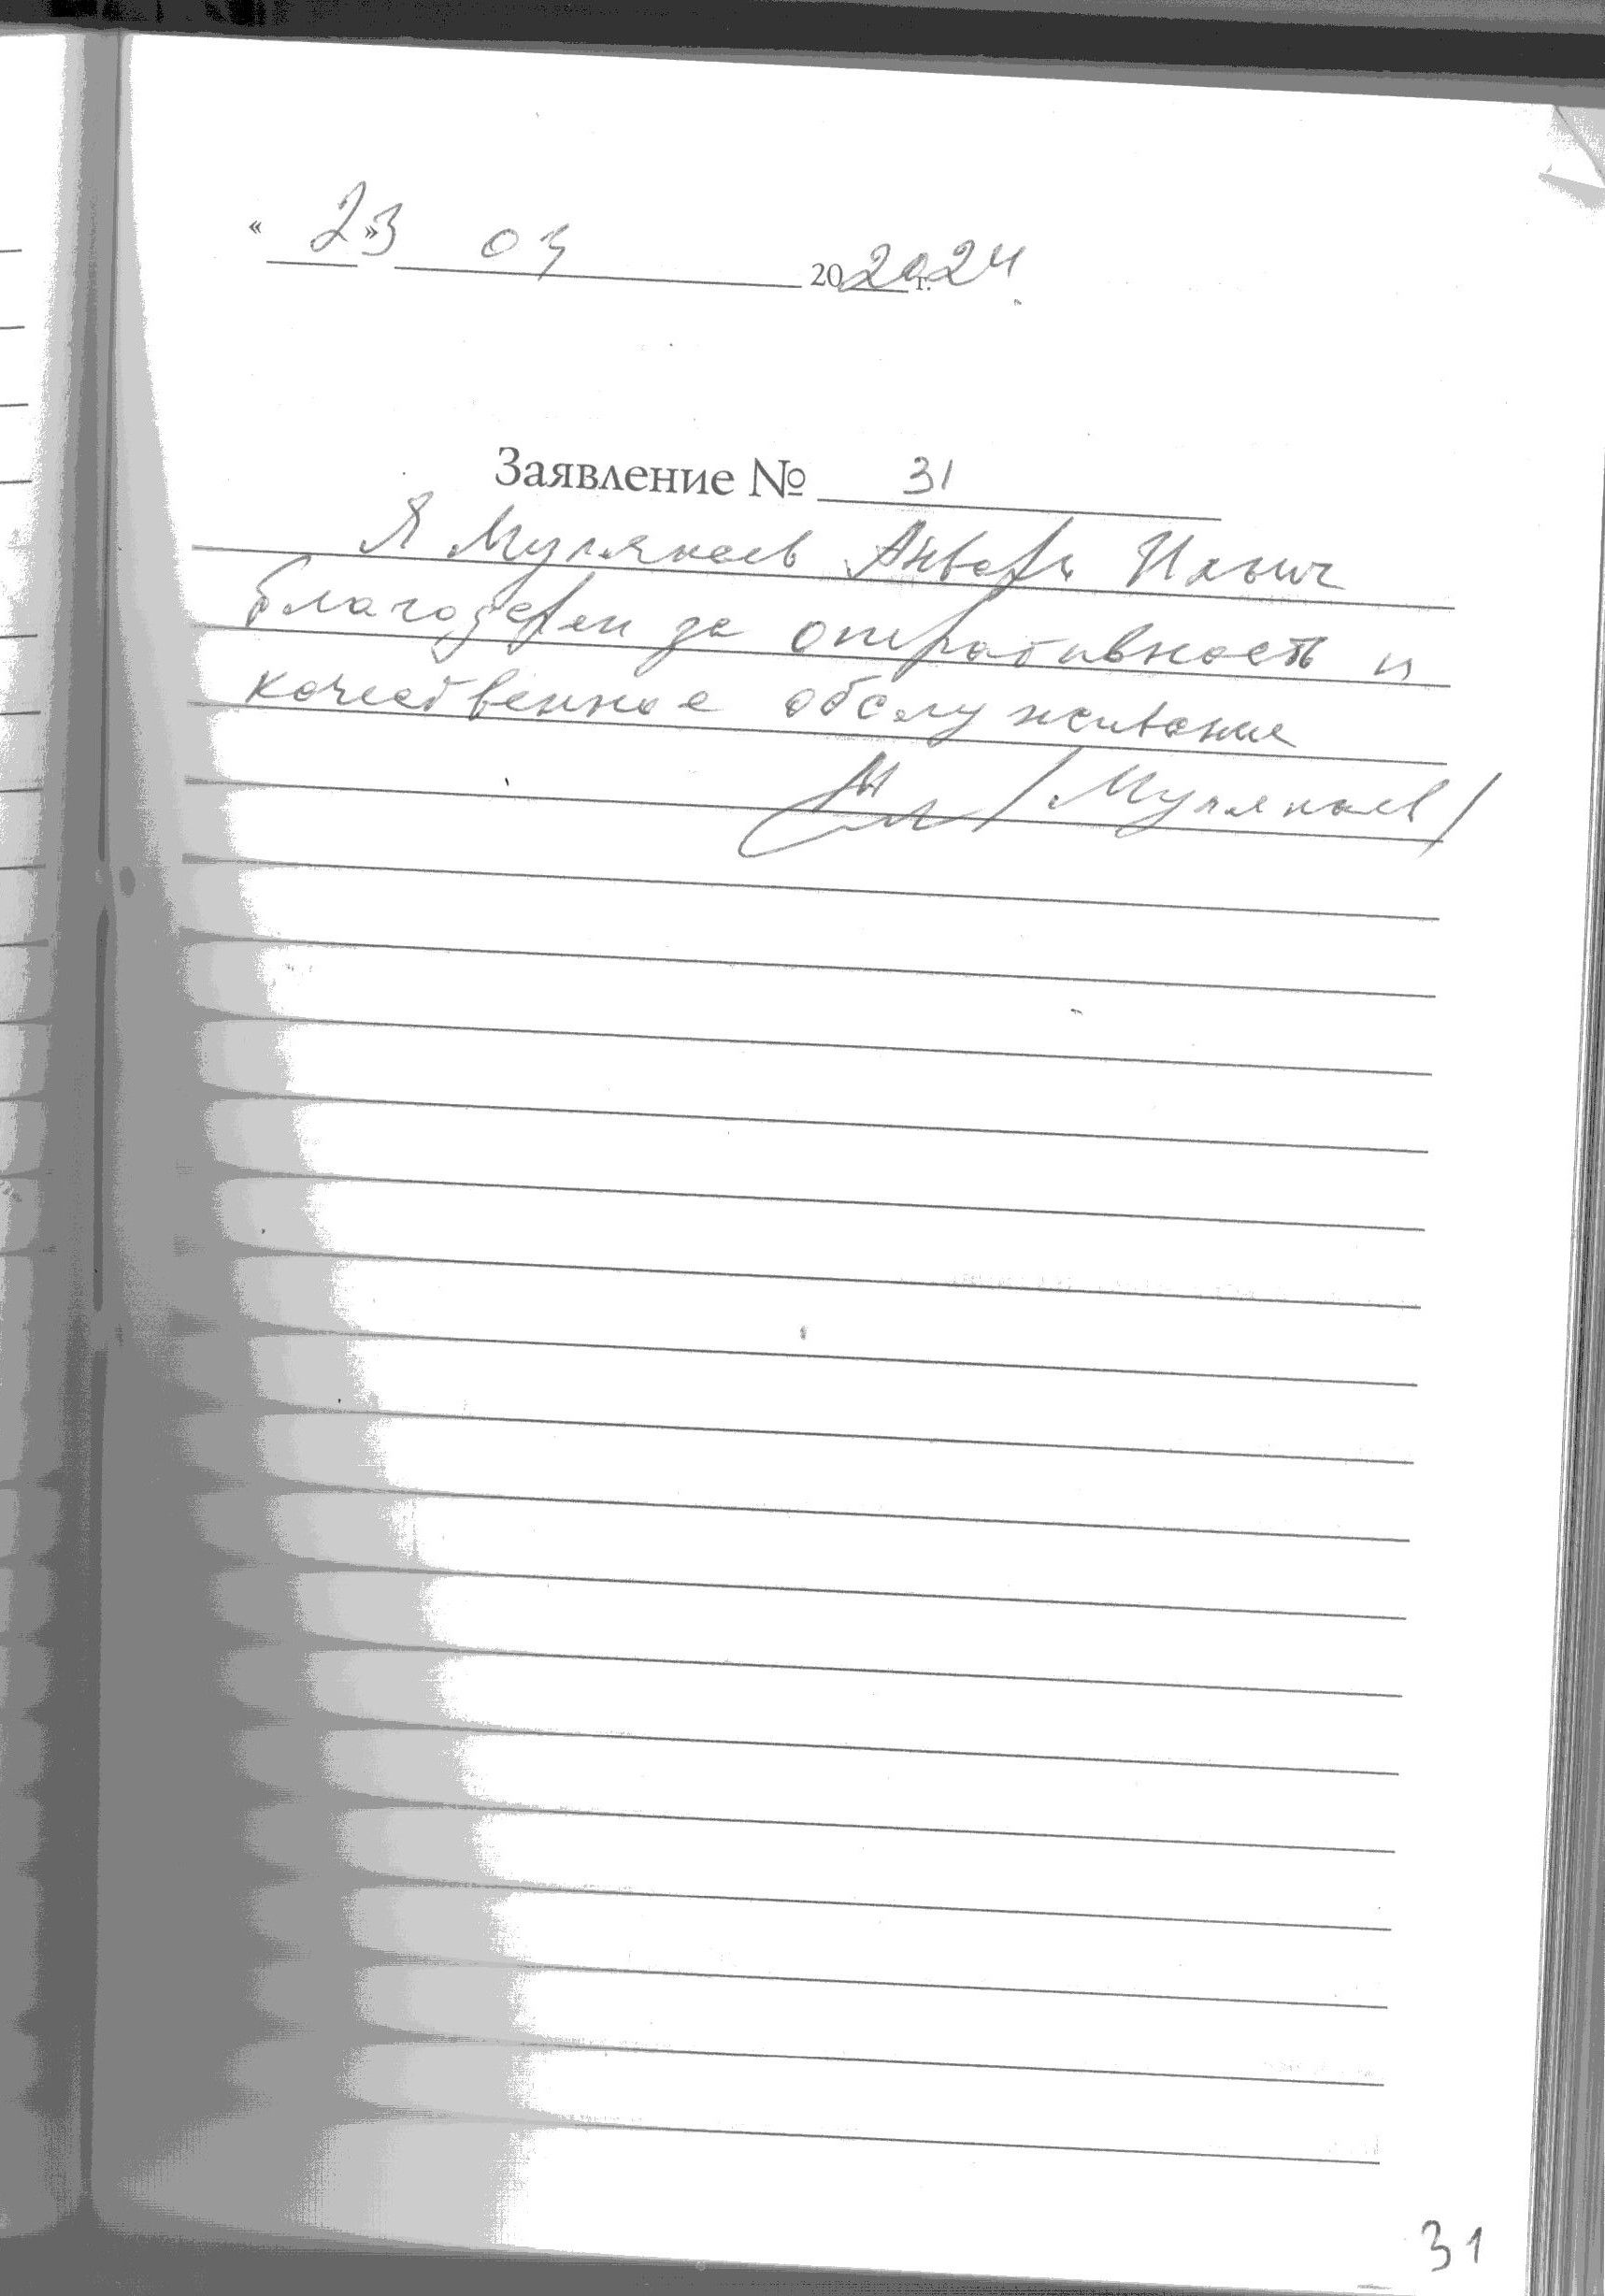 « 23 » 03 20 2024 г.
Заявление № 31
Я Мулянаев Анварь Ильич
благодарен за оперативность и
качественное обслуживание
/Мулянаев/
31